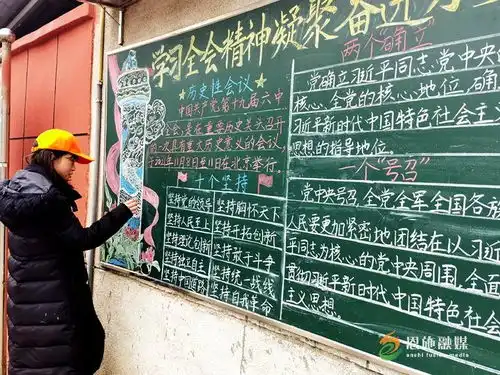 学习全会精神凝聚奋进力
历史性会议
中国共产党第十九届六中
全会,是在重要历史关头召开
的一次具有重大历史意义的会议
于2021年11月8日至11日在北京举行。
十个坚持
坚持党的领导 坚持胸怀天下
坚持人民至上 坚持开拓创新
坚持理论创新 坚持敢于斗争
坚持独立自主 坚持统一战线
坚持中国道路 坚持自我革命
两个“确立
党确立习近平同志党中央的
核心、全党的核心地位,确
习近平新时代中国特色社会主
思想的指导地位。
一个“号召”
党中央号召,全党全军全国各族
人民要更加紧密地团结在以习近
平同志为核心的党中央周围,全面
贯彻习近平新时代中国特色社会
主义思想。
恩施融媒
enshi fusion media